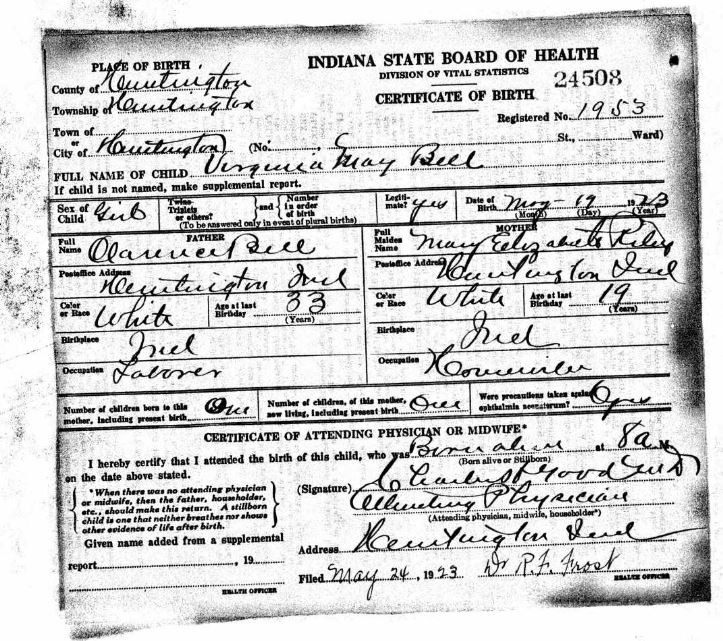 PLACE OF BIRTH
INDIANA STATE BOARD OF HEALTH
County of Huntington
DIVISION OF VITAL STATISTICS
24508
Township of Huntington
CERTIFICATE OF BIRTH
Town of
Registered No. 1953
or
City of Huntington (No. St., Ward)
FULL NAME OF CHILD Virginia May Bell
If child is not named, make supplemental report.
Sex of Child Girl
Twins, Triplets or others? } and { Number in order of birth
(To be answered only in event of plural births)
Legiti-mate? yes
Date of Birth May 19 1923
(Month) (Day) (Year)
FATHER
Full Name Clarence Bell
MOTHER
Full Maiden Name Mary Elizabeth Riley
Postoffice Address Huntington Ind
Postoffice Address Huntington Ind
Color or Race White
Age at last Birthday 33 (Years)
Color or Race White
Age at last Birthday 19 (Years)
Birthplace Ind
Birthplace Ind
Occupation Laborer
Occupation Housewife
Number of children born to this mother, including present birth One
Number of children, of this mother, now living, including present birth One
Were precautions taken against ophthalmia neonatorum? yes
CERTIFICATE OF ATTENDING PHYSICIAN OR MIDWIFE*
I hereby certify that I attended the birth of this child, who was Born alive at 8 a M.
(Born alive or Stillborn)
on the date above stated.
*When there was no attending physician
or midwife, then the father, householder,
etc., should make this return. A stillborn
child is one that neither breathes nor shows
other evidence of life after birth.
(Signature) Charles L Good M D
Attending Physician
(Attending physician, midwife, householder*)
Given name added from a supplemental
report , 19
Address Huntington Ind
Filed May 24, 1923 Dr R. F. Frost
HEALTH OFFICER
HEALTH OFFICER